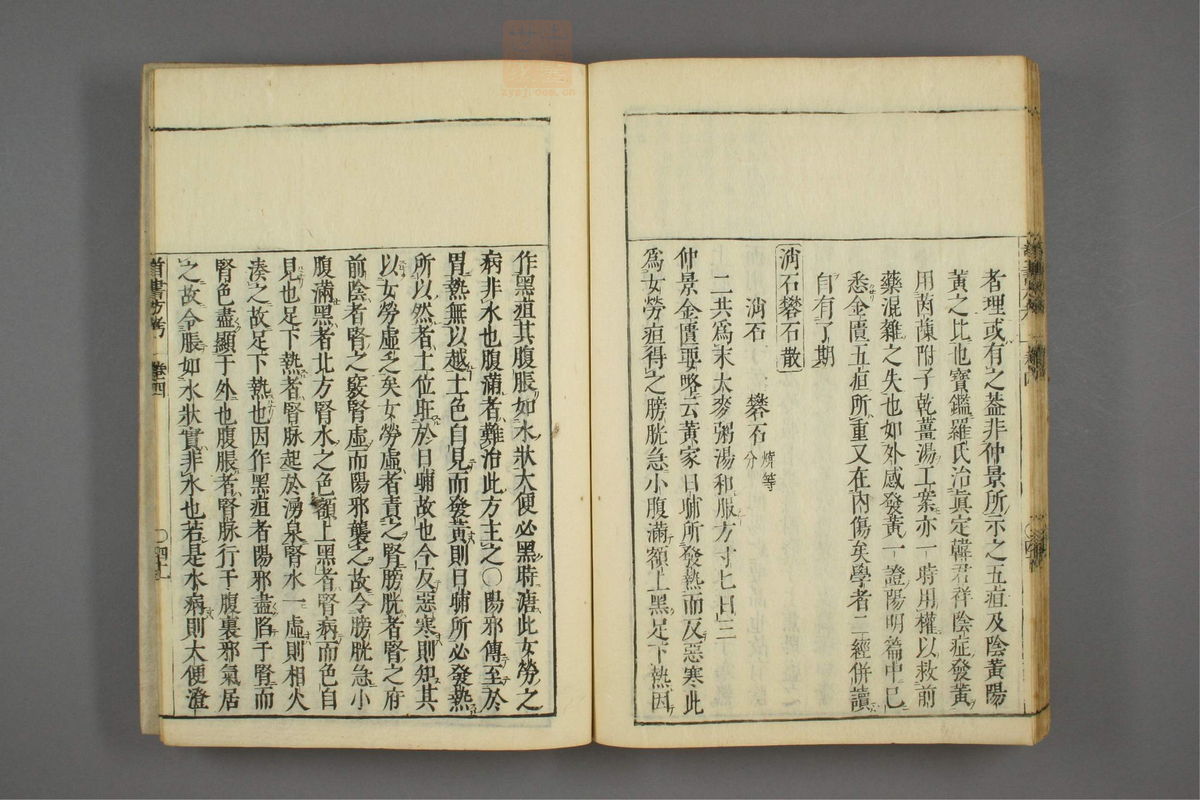 者理或有之葢非仲景所示之五疸及陰黃陽
黃之比也寶鑑羅氏治眞定韓君祥陰症發黃
用茵蔯附子乾薑湯工案亦一時用權以救前
藥混雜之失也如外感發黃一證陽明篇中已
悉金匱五疸所重又在內傷矣學者二經併讀
自有了期
消石礬石散
消石 礬石燒等分
二共爲末大麥粥湯和服方寸匕日三
仲景金匱要略云黃家日晡所發熱而反惡寒此
爲女勞疸得之膀胱急小腹滿額上黑足下熱因
作黑疸其腹脹如水狀大便必黑時溏此女勞之
病非水也腹滿者難治此方主之〇陽邪傳至於
胃熱無以越土色自見而發黃則日晡所必發熱
所以然者土位旺於日晡故也今反惡寒則知其
以女勞虛之矣女勞虛者責之腎膀胱者腎之府
前陰者腎之竅腎虛而陽邪襲之故令膀胱急小
腹滿黑者北方腎水之色額上黑者腎病而色自
見也足下熱者腎脉起於湧泉腎水一虛則相火
湊之故足下熱也因作黑疸者陽邪盡陷于腎而
腎色盡顯于外也腹脹者腎脉行于腹裏邪氣居
之故令脹如水狀實非水也若是水病則大便澄
卷四